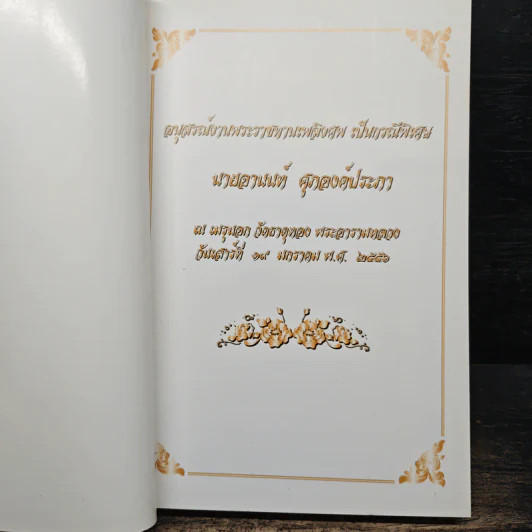 อนุสรณ์งานพระราชทานเพลิงศพ เป็นกรณีพิเศษ
นายอานนท์ ศุภองค์ประภา
ณ เมรุเอก วัดธาตุทอง พระอารามหลวง
วันเสาร์ที่ ๑๙ มกราคม พ.ศ. ๒๕๕๖